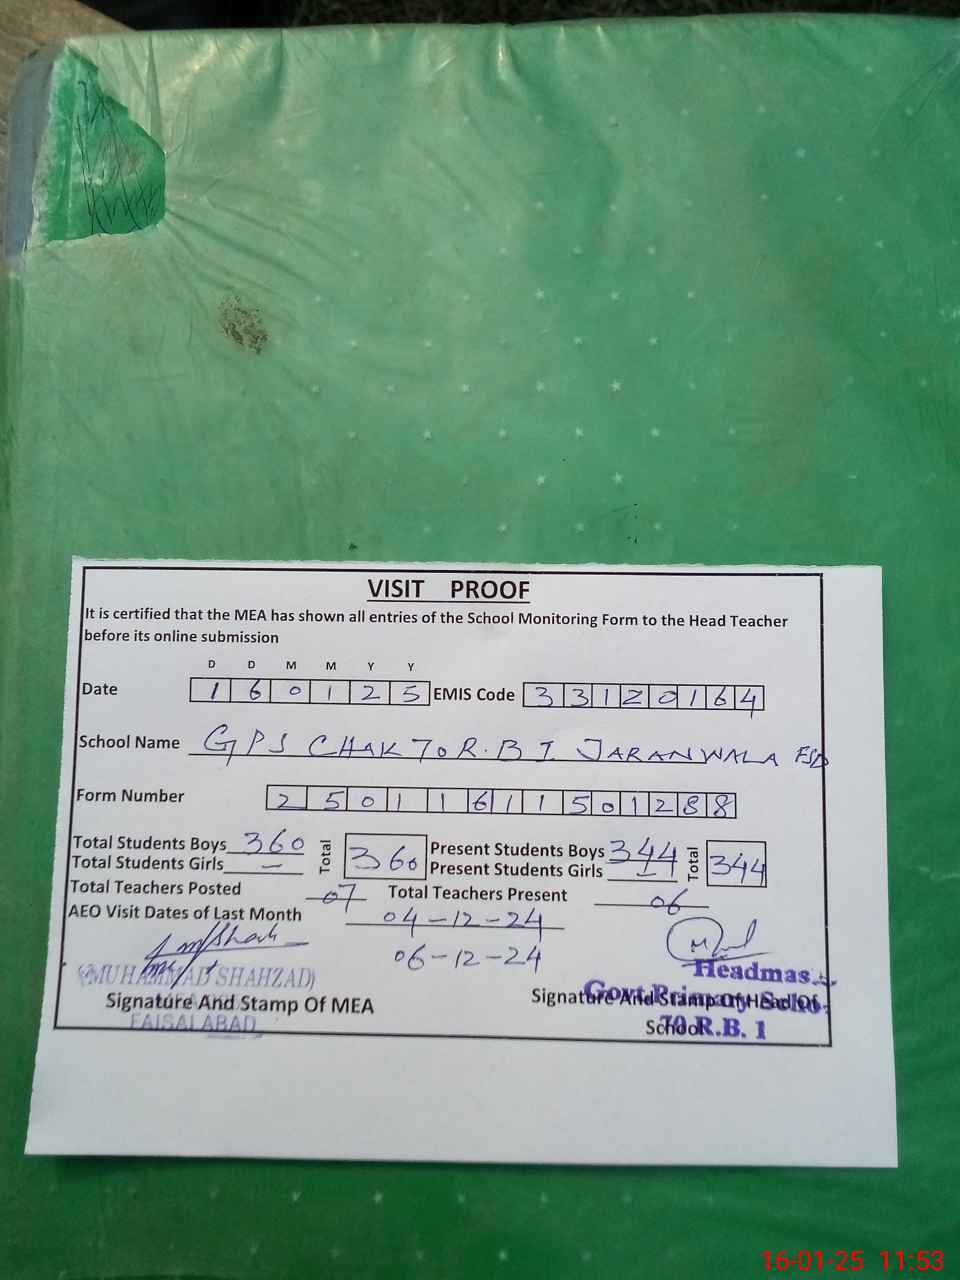 VISIT PROOF
It is certified that the MEA has shown all entries of the School Monitoring Form to the Head Teacher
before its online submission
D D M M Y Y
Date 1 6 0 1 2 5 EMIS Code 3 3 1 2 0 1 6 4
School Name GPS CHAK 70 R.B I JARANWALA FSD
Form Number 2 5 0 1 1 6 1 1 5 0 1 2 8 8
Total Students Boys 360 Total 360 Present Students Boys 344 Total 344
Total Students Girls — Present Students Girls —
Total Teachers Posted 07 Total Teachers Present 06
AEO Visit Dates of Last Month 04-12-24
06-12-24
(MUHAMMAD SHAHZAD)
Signature And Stamp Of MEA
FAISALABAD
Headmas
Govt Primary Scho
Signature And Stamp Of Head Of
School
70 R.B. 1
16-01-25 11:53